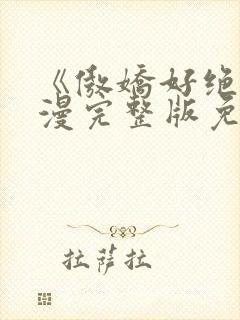 《傲娇好绝
漫完整版免
拉萨拉